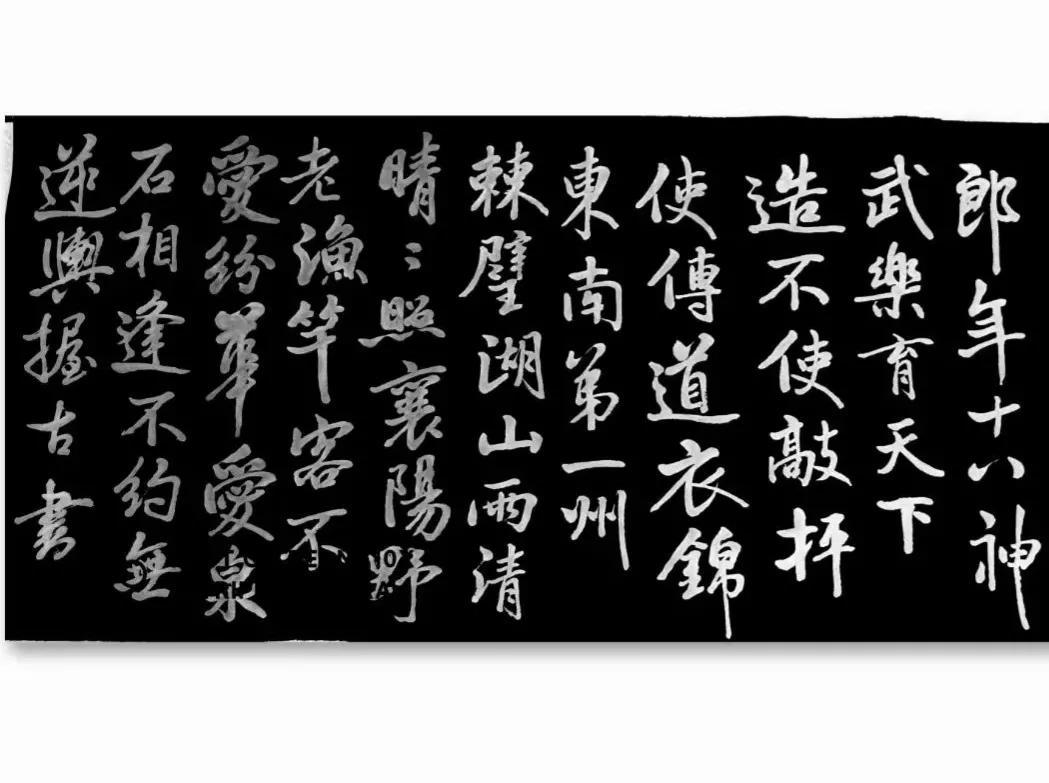 郎年十八神
武樂育天下
造不使敲抨
使傳道衣錦
東南第一州
棘璧湖山兩清
晴〻照襄陽野
老漁竿客不
愛紛華愛泉
石相逢不約無
逆輿握古書